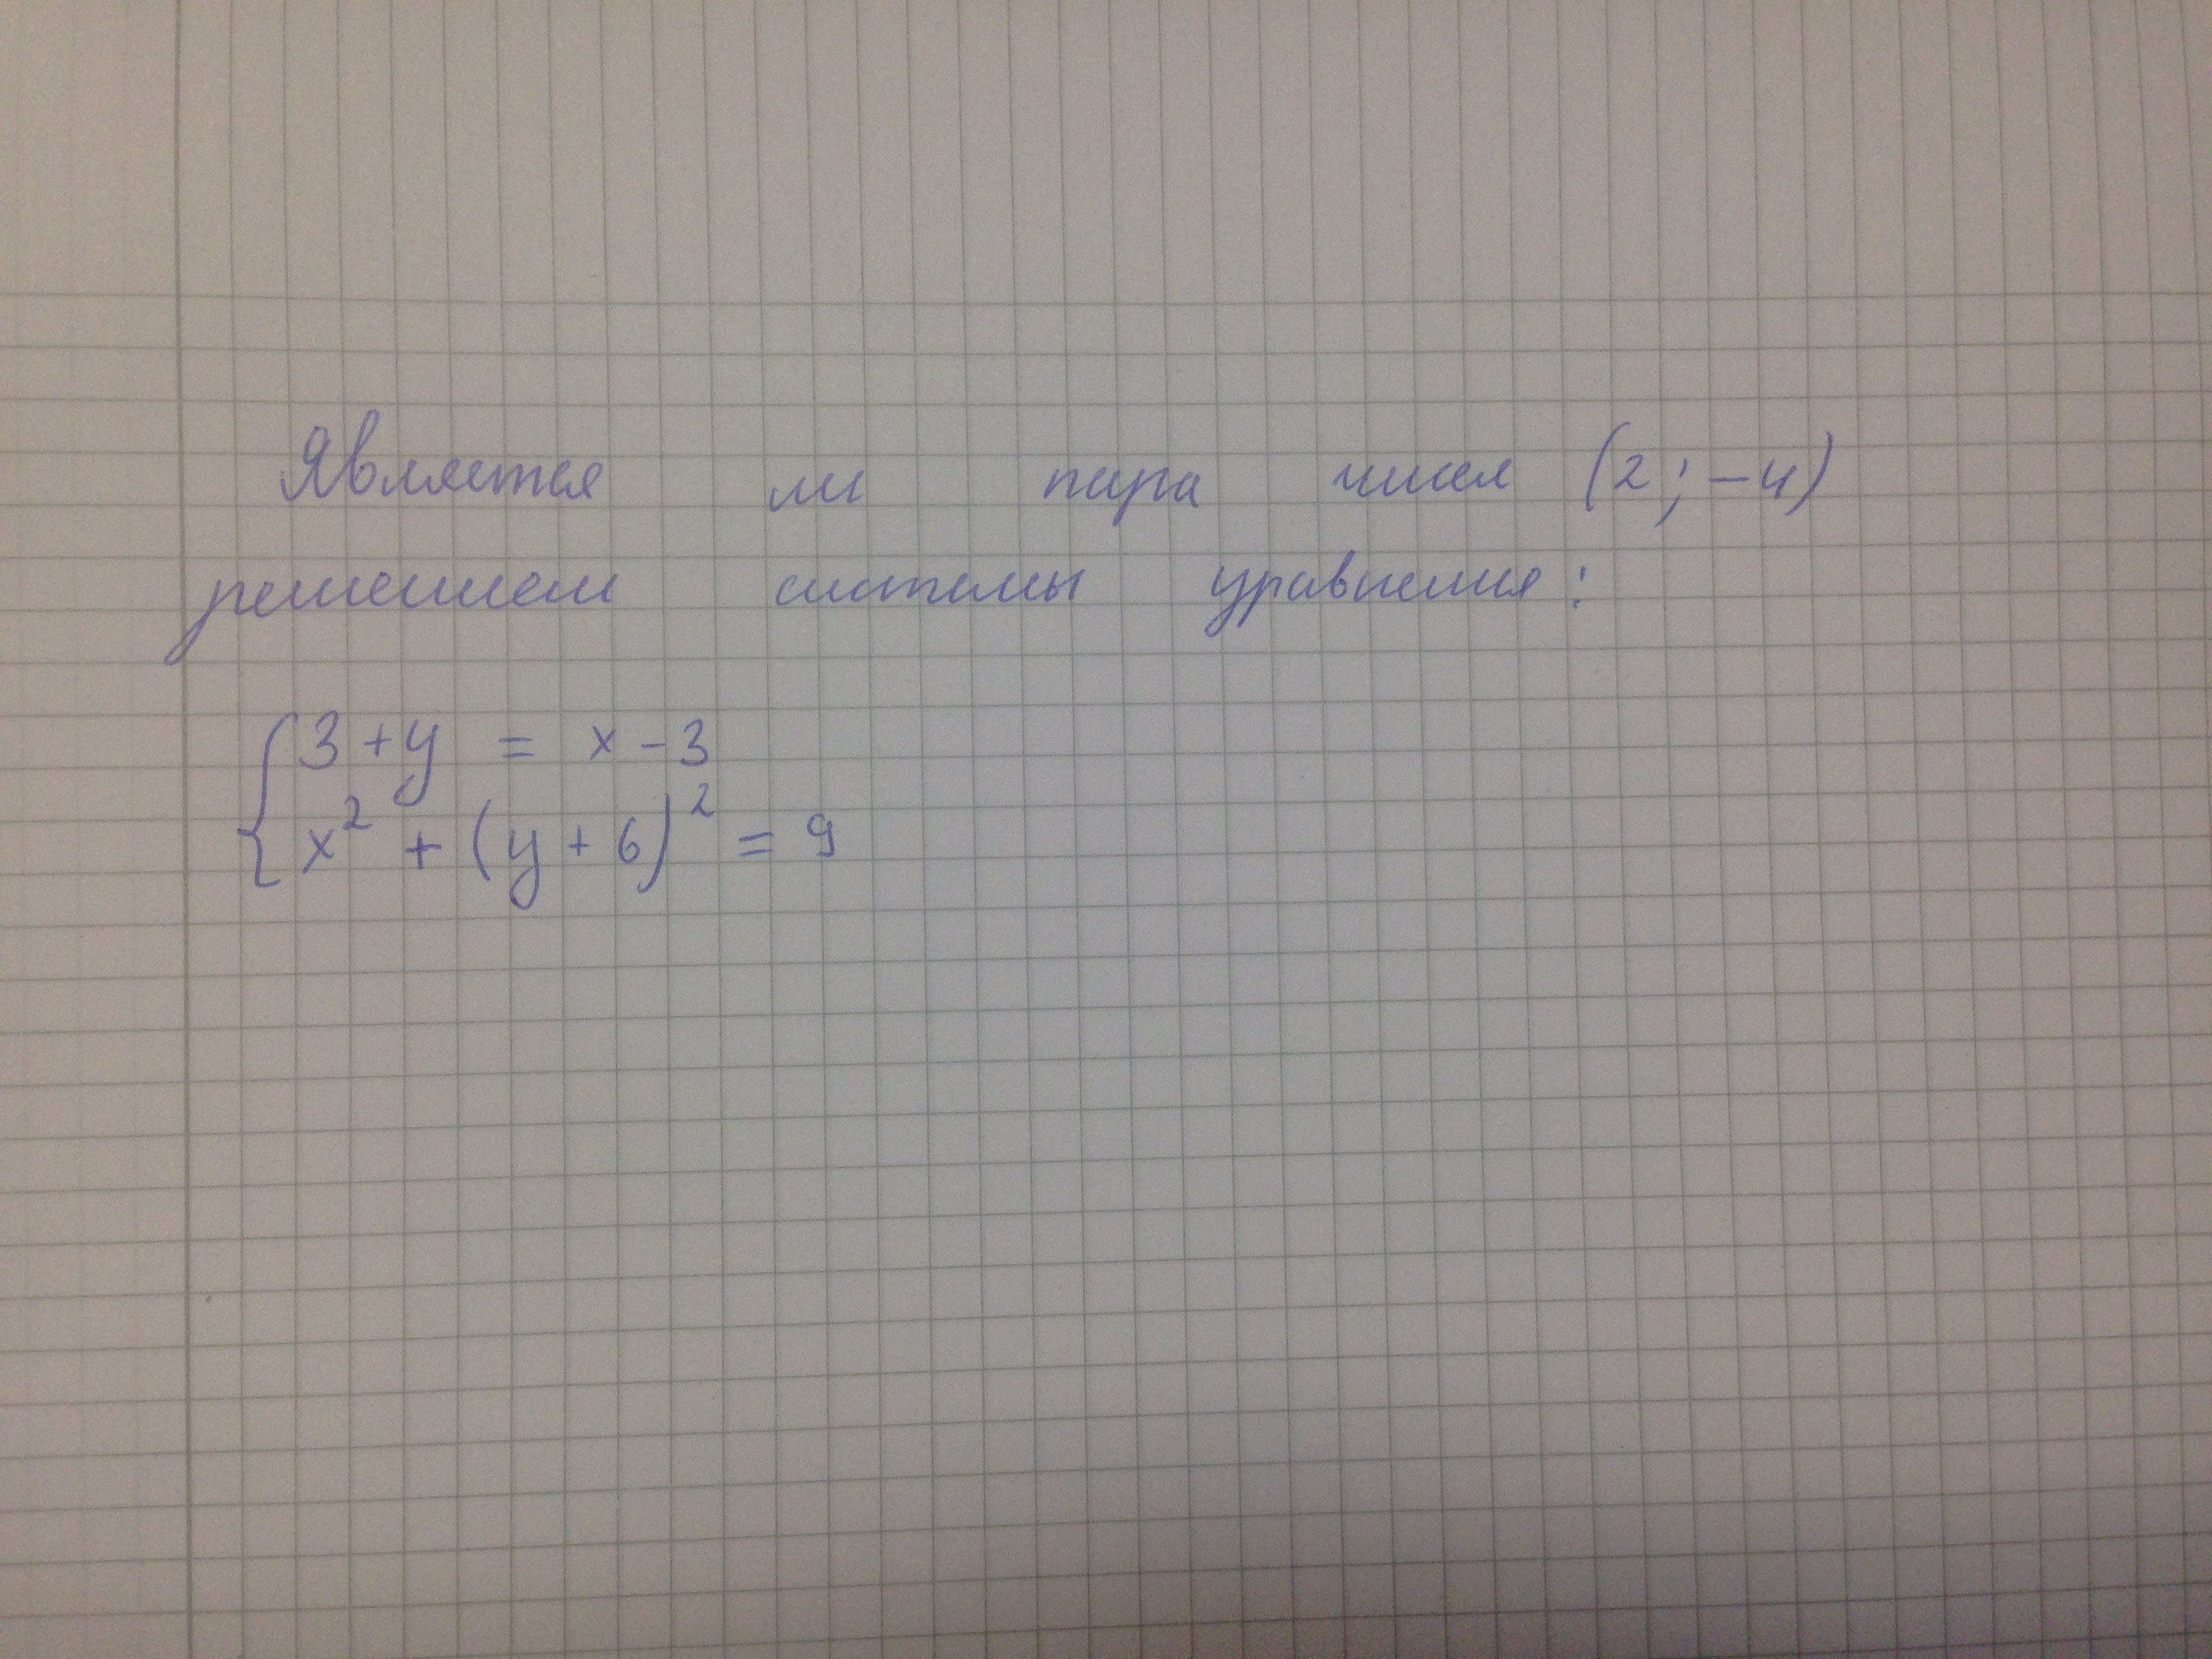 Является ли пара чисел (2; -4)
решением системы уравнения:
{ 3 + y = x - 3
x² + (y + 6)² = 9